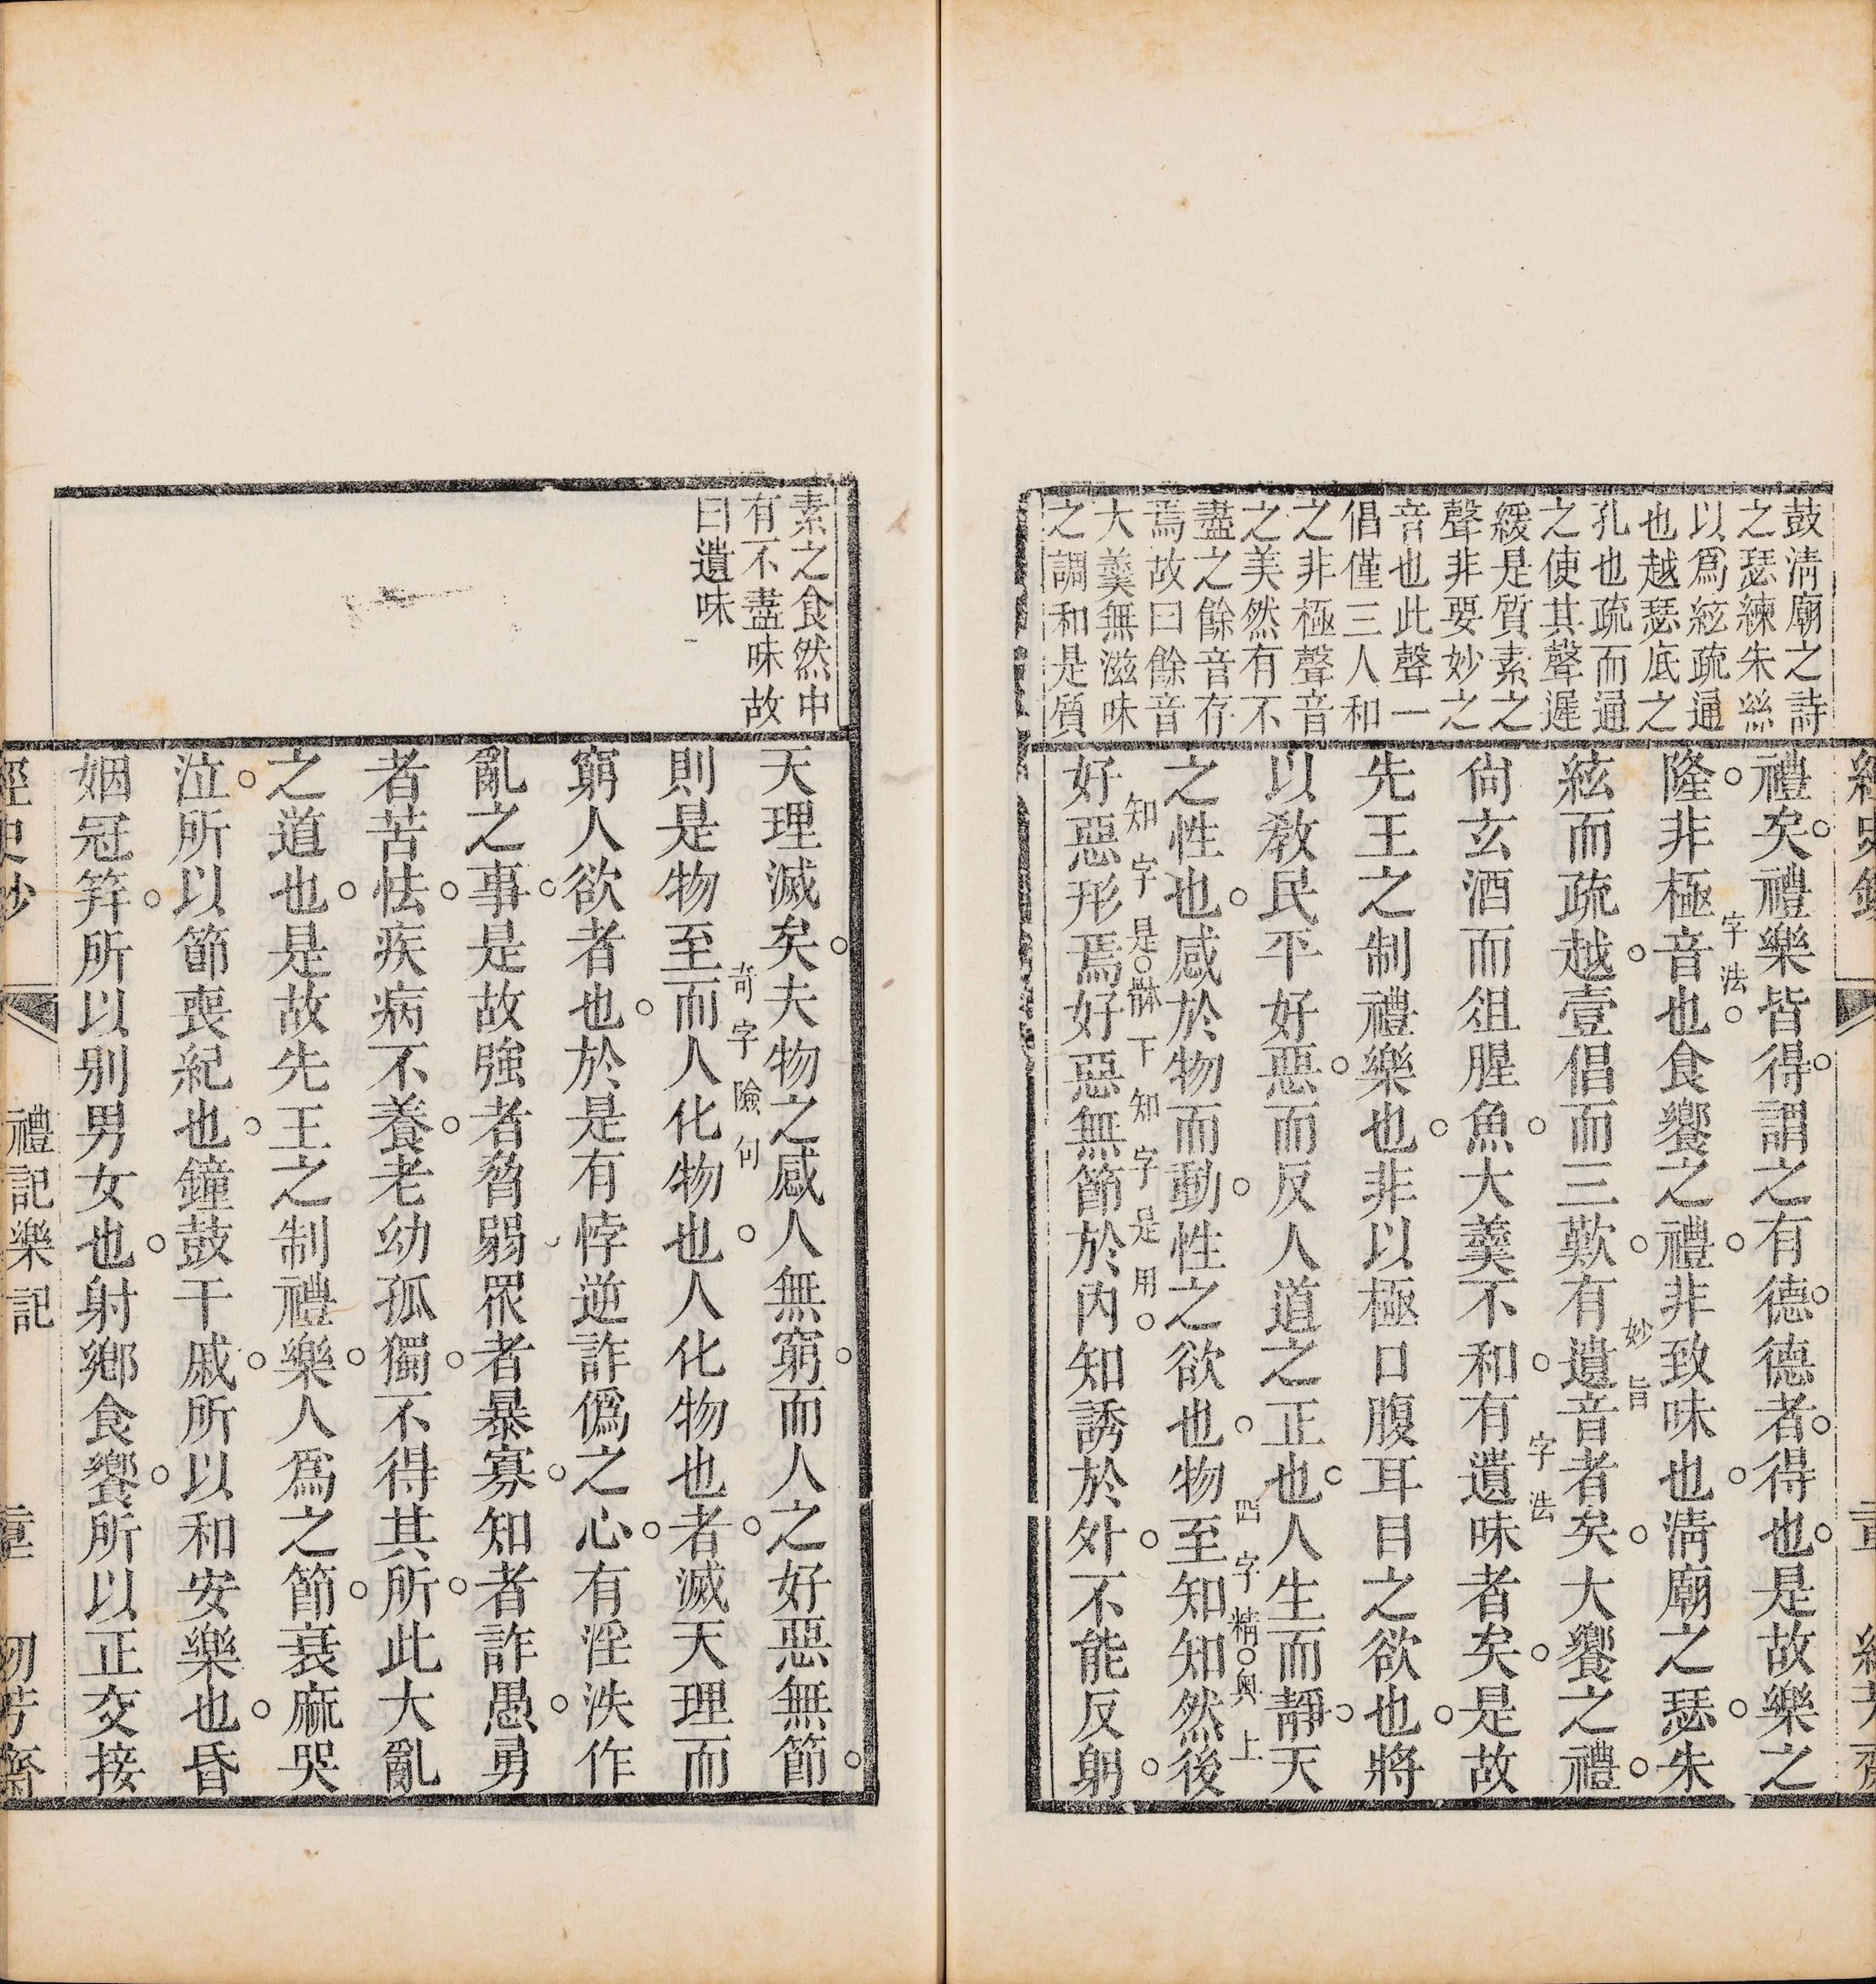 鼓淸廟之詩
之瑟練朱絲
以爲絃疏通
也越瑟底之
孔也疏而通
之使其聲遲
緩是質素之
聲非要妙之
音也此聲一
倡僅三人和
之非極聲音
之美然有不
盡之餘音存
焉故曰餘音
大羹無滋味
之調和是質
禮矣禮樂皆得謂之有德德者得也是故樂之
隆非極音也食饗之禮非致味也淸廟之瑟朱
字法
絃而疏越壹倡而三歎有遺音者矣大饗之禮
妙旨
尙玄酒而俎腥魚大羹不和有遺味者矣是故
字法
先王之制禮樂也非以極口腹耳目之欲也將
以敎民平好惡而反人道之正也人生而靜天
之性也感於物而動性之欲也物至知知然後
四字精奧上
好惡形焉好惡無節於內知誘於外不能反躬
知字是體下知字是用
素之食然中
有不盡味故
曰遺味
天理滅矣夫物之感人無窮而人之好惡無節
則是物至而人化物也人化物也者滅天理而
奇字險句
窮人欲者也於是有悖逆詐僞之心有淫泆作
亂之事是故強者脅弱眾者暴寡知者詐愚勇
者苦怯疾病不養老幼孤獨不得其所此大亂
之道也是故先王之制禮樂人爲之節衰麻哭
泣所以節喪紀也鐘鼓干戚所以和安樂也昏
姻冠笄所以別男女也射鄉食饗所以正交接
經史鈔
禮記樂記